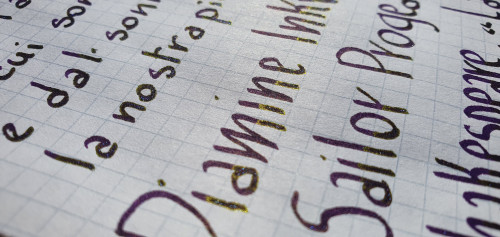 cui son
e dal. son
la nostra pi
Diamine Ink
Sailor Proge
hakespeare